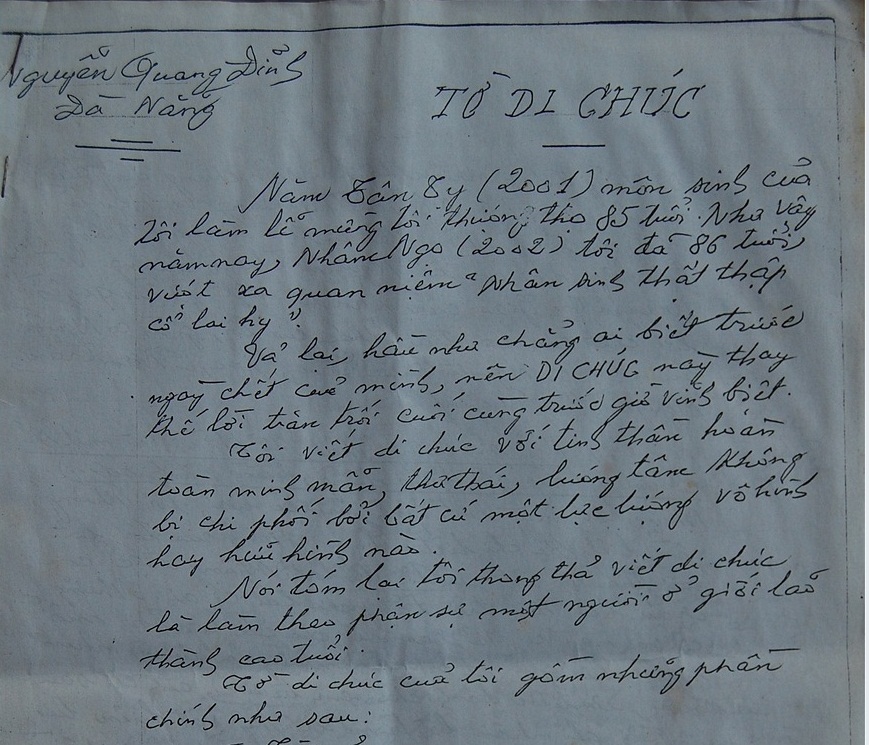 Nguyễn Quang Đỉnh
Đà Nẵng
TỜ DI CHÚC
Năm Tân Tỵ (2001) môn sinh của
tôi làm lễ mừng tôi thượng thọ 85 tuổi. Như vậy
năm nay, Nhâm Ngọ (2002) tôi đã 86 tuổi,
vượt xa quan niệm "Nhân sinh thất thập
cổ lai hy".
Vả lại, hầu như chẳng ai biết trước
ngày chết của mình, nên DI CHÚC này thay
thế lời trăn trối cuối cùng trước giờ vĩnh biệt.
Tôi viết di chúc với tinh thần hoàn
toàn minh mẫn, thư thái, lương tâm không
bị chi phối bởi bất cứ một lực lượng vô hình
hay hữu hình nào.
Nói tóm lại tôi thong thả viết di chúc
là làm theo phận sự một người ở giới lão
thành cao tuổi.
Tờ di chúc của tôi gồm những phần
chính như sau: